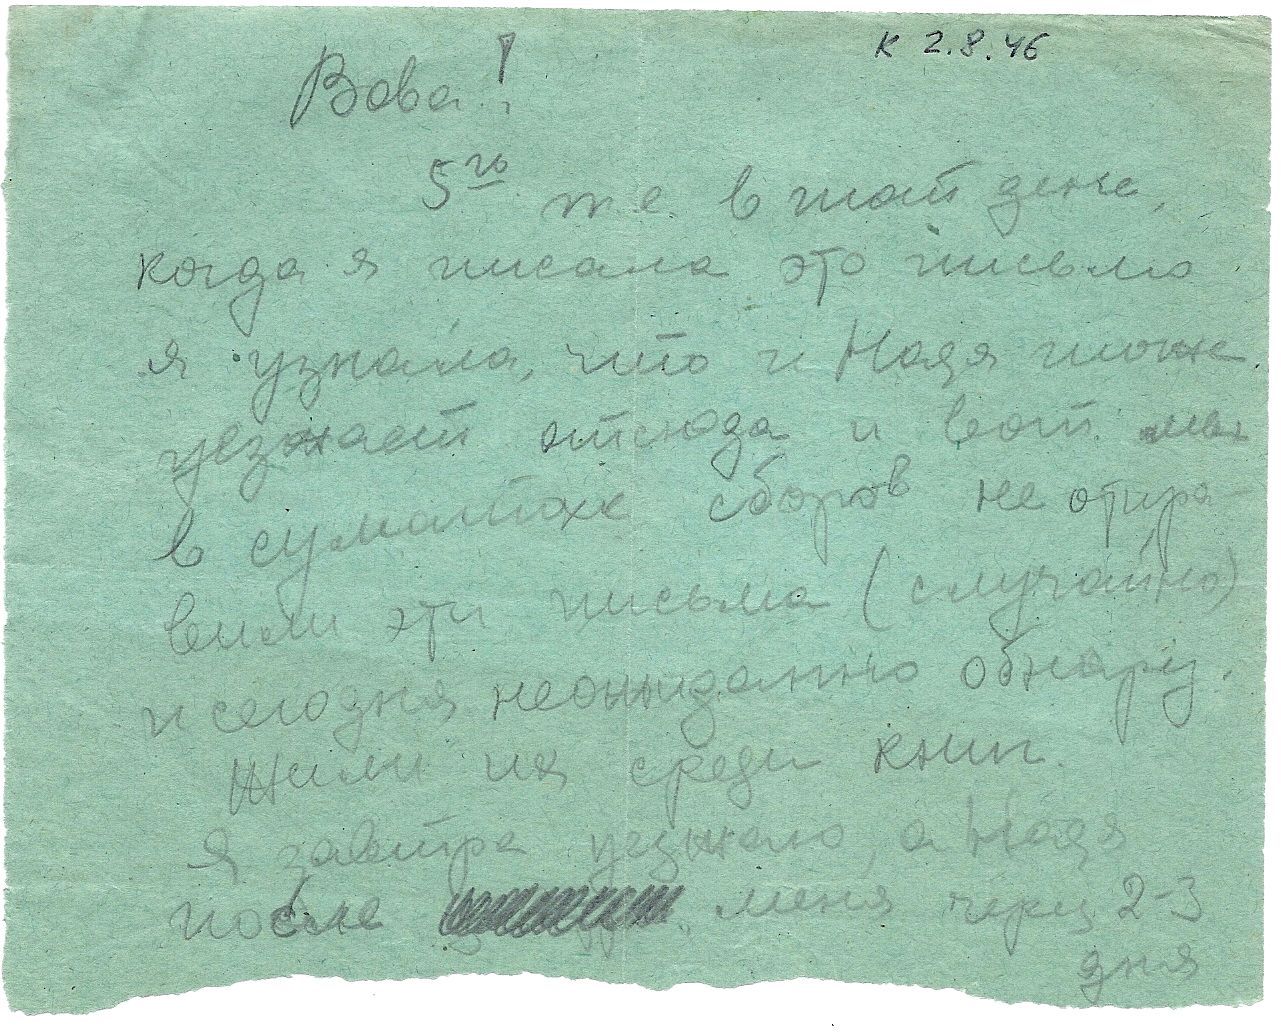 К 2.8.46
Вова!
5го же в тот день,
когда я писала это письмо
я узнала, что и Надя тоже
уезжает отсюда и вот мы
в суматохе сборов не отпра-
вили эти письма (случайно)
и сегодня неожиданно обнару-
жили их среди книг.
Я завтра уезжаю, а Надя
после меня через 2-3
дня